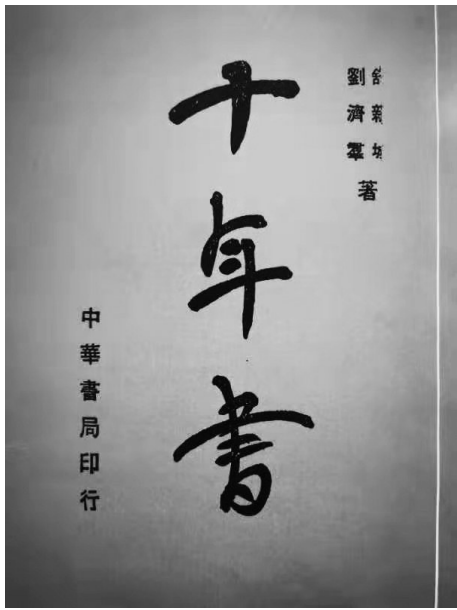 舒新城
劉濟羣
著
十年書
中華書局印行